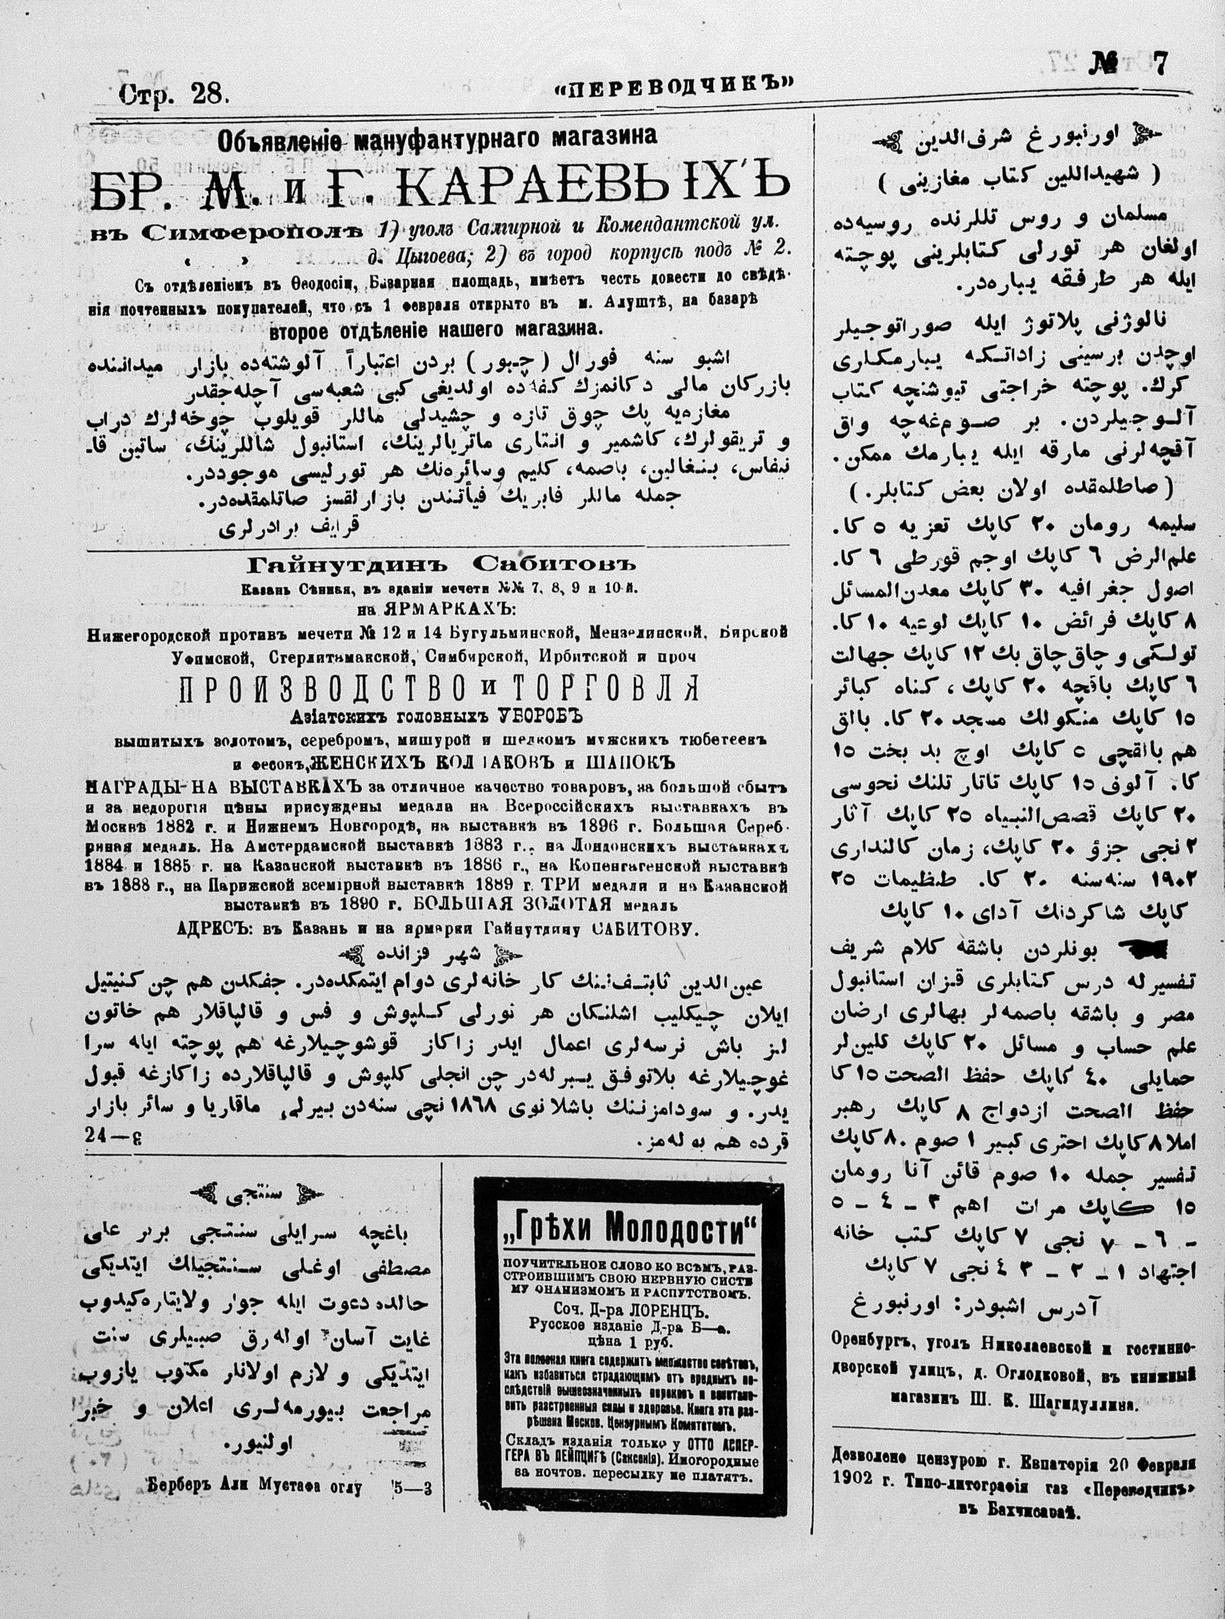 Стр. 28.
«ПЕРЕВОДЧИКЪ»
№ 7
Объявленіе мануфактурнаго магазина
БР. М. и Г. КАРАЕВЫХЪ
въ Симферополѣ 1) уголъ Салгирной и Комендантской ул.
д. Цыгоева; 2) въ город корпусѣ подъ № 2.
Съ отдѣленіемъ въ Ѳеодосіи, Базарная площадь, имѣетъ честь довести до свѣдѣ-
нія почтенныхъ покупателей, что съ 1 февраля открыто въ м. Алуштѣ, на базарѣ
второе отдѣленіе нашего магазина.
اشبو سنه فورال (چبور) بردن اعتباراً آلوشتهده بازار میداننده
بازرکان مالی دکانمزك کفهده اولدیغی کبی شعبهسی آچلهجقدر
مغازهیه پك چوق تازه و چشیدلی ماللر قویلوب چوخهلرك دراب
و تریقولرك، کاشمیر و انتاری ماتریالرینك، استانبول شاللرینك، ساتین قا-
نیفاس، بنغالین، باصمه، کلیم وسائرهنك هر تورلیسی موجوددر.
جمله ماللر فابریك فیأتندن بازارلقسز صاتلمقدهدر.
قرایف برادرلری
Гайнутдинъ Сабитовъ
Казань Сѣнная, въ зданіи мечети №№ 7, 8, 9 и 10-й.
на ЯРМАРКАХЪ:
Нижегородской противъ мечети № 12 и 14 Бугульминской, Мензелинской, Бирской
Уфимской, Стерлитамакской, Симбирской, Ирбитской и проч
ПРОИЗВОДСТВО и ТОРГОВЛЯ
Азіатскихъ головныхъ УБОРОВЪ
вышитыхъ золотомъ, серебромъ, мишурой и шелкомъ мужскихъ тюбетеекъ
и фесокъ, ЖЕНСКИХЪ КОЛПАКОВЪ и ШАПОКЪ
НАГРАДЫ НА ВЫСТАВКАХЪ за отличное качество товаровъ, за большой сбытъ
и за недорогія цѣны присуждены медали на Всероссійскихъ выставкахъ въ
Москвѣ 1882 г. и Нижнемъ Новгородѣ, на выставкѣ въ 1896 г. Большая Сереб-
ряная медаль. На Амстердамской выставкѣ 1883 г., на Лондонскихъ выставкахъ
1884 и 1885 г. на Казанской выставкѣ въ 1886 г., на Копенгагенской выставкѣ
въ 1888 г., на Парижской всемірной выставкѣ 1889 г. ТРИ медали и на Казанской
выставкѣ въ 1890 г. БОЛЬШАЯ ЗОЛОТАЯ медаль
АДРЕСЪ: въ Казань и на ярмарки Гайнутдину САБИТОВУ.
شهر قزانده
عین‌الدین ثابتفنك کار خانهلری دوام ایتمکدهدر. جفکدن هم چن کنیتیل
ایلان چیکلیب اشلنکان هر نورلی کلپوش و فس و قالپاقلار هم خاتون
لنز باش نرسهلری اعمال ایدر زاکاز قوشوچیلارغه هم پوچته ایله سرا
غوچیلارغه بلاتوفق یبرلهدر چن انجلی کلپوش و قالپاقلارده زاکازغه قبول
یدر. و سودامزننك باشلانوی ١٨٦٨ نچی سنهدن بیرلی ماقاریا و سائر بازار
قرده هم بولهمز.
24—9
سنتجی
باغچه سرایلی سنتجی بربر علی
مصطفی اوغلی سنتجیلك ایتدیکی
حالده دعوت ایله جوار ولایتارهکیدوب
غایت آسان اولهرق صبیلری سنت
ایتدیکی و لازم اولانلر مکتوب یازوب
مراجعت بیورمهلری اعلان و خبر
اولنیور.
Берберъ Али Мустафа оглу 5—3
„Грѣхи Молодости“
ПОУЧИТЕЛЬНОЕ СЛОВО КО ВСѢМЪ, РАЗ-
СТРОИВШИМЪ СВОЮ НЕРВНУЮ СИСТЕ
МУ ОНАНИЗМОМЪ И РАСПУТСТВОМЪ.
Соч. Д-ра ЛОРЕНЦЪ.
Русское изданіе Д-ра Б—а.
цѣна 1 руб.
Эта полезная книга содержитъ множество совѣтовъ,
какъ избавиться страдающимъ отъ вредныхъ по-
слѣдствій вышеозначенныхъ пороковъ и возстано-
вить разстроенныя силы и здоровье. Книга эта раз-
рѣшена Москов. Цензурнымъ Комитетомъ.
Складъ изданія только у ОТТО АСПЕР-
ГЕРА ВЪ ЛЕЙПЦИГѢ (Саксонія). Иногородные
за почтов. пересылку не платятъ.
اورنبورغ شرف‌الدین
(شهیداللین کتاب مغازینی)
مسلمان و روس تللرنده روسیهده
اولغان هر تورلی کتابلرینی پوچته
ایله هر طرفقه یبارهدر.
نالوژنی پلاتوژ ایله صوراتوجیلر
اوچدن برسینی زاداتکه یبارمکلری
کرك. پوچته خراجتی تیوشنچه کتاب
آلوجیلردن. بر صومغهچه واق
آقچهلرنی مارقه ایله یبارمك ممکن.
(صاطلمقده اولان بعض کتابلر.)
سلیمه رومان ٢٠ کاپك تعزیه ٥ کا.
علم‌الرض ٦ کاپك اوجم قورطی ٦ کا.
اصول جغرافیه ٣٠ کاپك معدن‌المسائل
٨ کاپك فرائض ١٠ کاپك لوعیه ١٠ کا.
تولکی و چاق‌چاق بك ١٢ کاپك جهالت
٦ کاپك باقچه ٢٠ کاپك، کناه کبائر
١٥ کاپك منکولك مسجد ٢٠ کا. بالق
هم بالقچی ٥ کاپك اوچ بد بخت ١٥
کا. آلوف ١٥ کاپك تاتار تلنك نحوسی
٢٠ کاپك قصص‌النبیاه ٢٥ کاپك آثار
٢ نجی جزؤ ٢٠ کاپك، زمان کالنداری
١٩٠٢ سنهسنه ٢٠ کا. طنظیمات ٢٥
کاپك شاکردنك آدای ١٠ کاپك
بونلردن باشقه کلام شریف
تفسیرله درس کتابلری قزان استانبول
مصر و باشقه باصمهلر بهالری ارضان
علم حساب و مسائل ٢٠ کاپك کلین‌لر
حمایلی ٤٠ کاپك حفظ الصحت ١٥ کا
حفظ الصحت ازدواج ٨ کاپك رهبر
املا ٨ کاپك اختری کبیر ١ صوم ٨٠ کاپك
تفسیر جمله ١٠ صوم قائن آنا رومان
١٥ کاپك مرات اهم ٣ - ٤ - ٥
- ٦ - ٧ نجی ٧ کاپك کتب خانه
اجتهاد ١ - ٢ - ٣ ٤ نجی ٧ کاپك
آدرس اشبودر: اورنبورغ
Оренбургъ, уголъ Николаевской и гостинно-
дворской улицъ, д. Оглодковой, въ книжный
магазинъ Ш. К. Шагидуллина.
Дозволено цензурою г. Евпаторія 20 Февраля
1902 г. Типо-литографія газ «Переводчикъ»
въ Бахчисараѣ.